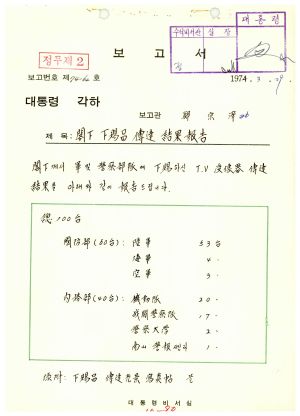 정무제2
보고서
수석비서관 실장 대통령
보고번호 제74-16호
1974. 3. 29.
대통령 각하
보고관
제목: 閣下 下賜品 傳達 結果報告
閣下께서 軍 및 警察部隊에 下賜하신 T.V 受像器 傳達
結果를 아래와 같이 報告 드립니다.
總 100台
國防部(60台): 陸軍 53台
海軍 4 〃
空軍 3 〃
內務部(40台): 機動隊 20 〃
戰鬪警察隊 17 〃
警察大學 2 〃
南山 1 〃
添附: 下賜品 傳達光景 寫眞帖 끝
대통령비서실